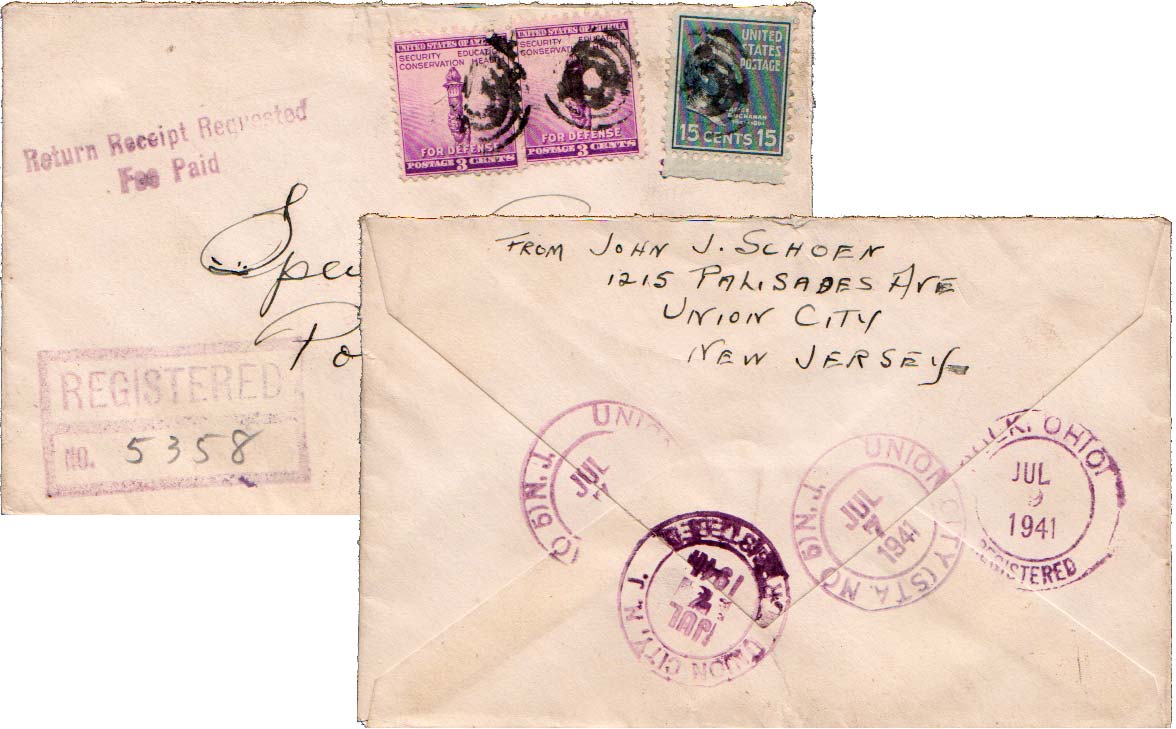 Return Receipt Requested
Fee Paid
UNITED STATES OF AMERICA
SECURITY EDUCATION
CONSERVATION HEALTH
FOR DEFENSE
POSTAGE 3 CENTS
UNITED STATES OF AMERICA
SECURITY EDUCATION
CONSERVATION
FOR DEFENSE
POSTAGE 3 CENTS
UNITED
STATES
POSTAGE
BUCHANAN
15 CENTS 15
REGISTERED
NO. 5358
FROM JOHN J. SCHOEN
1215 PALISADES AVE
UNION CITY
NEW JERSEY
UNION
N.J.
JUL
UNION CITY (STA. NO 6) N.J.
JUL
1941
OHIO
JUL
9
1941
REGISTERED
REGISTERED
UNION CITY, N. J.
JUL
1941